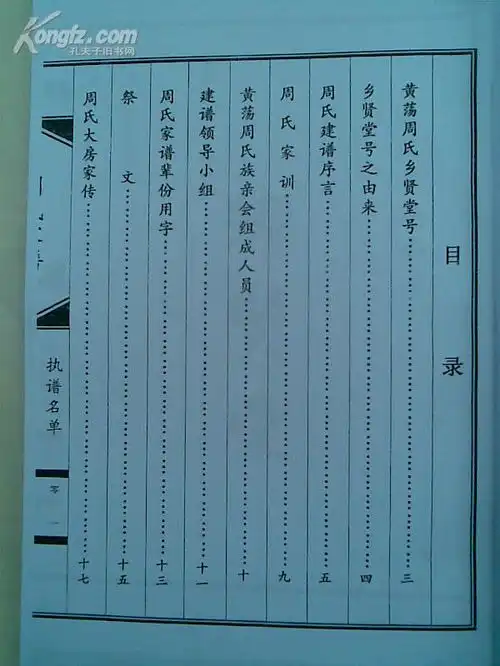 Kongfz.com
孔夫子旧书网
目录
黄荡周氏乡贤堂号……三
乡贤堂号之由来……四
周氏建谱序言……五
周氏家训……九
黄荡周氏族亲会组成人员……十
建谱领导小组……十一
周氏家谱辈份用字……十三
祭文……十五
周氏大房家传……十七
执谱名单
零一